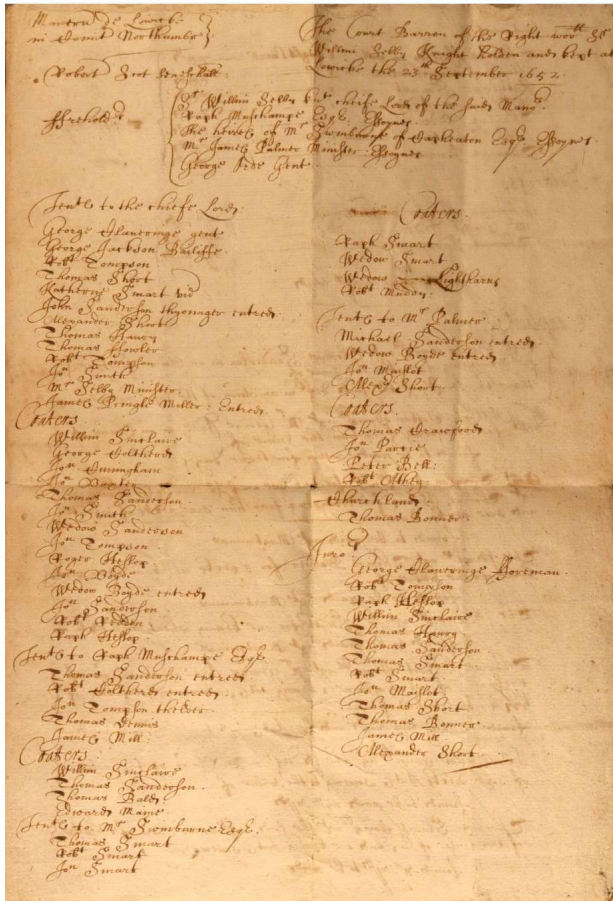 Maneriu de Lowicke
in Comit Northumbr
The Court Barron of the Right worth Sr
Willim Selby Knight holden and kept at
Lowicke the 23th September 1652
Robert Scot
ffrehold
Sr Willim Selby knt cheife Lord of the said Mang
Raph Muschampe Esqr. Essoynes
The heires of Mr Swinburne of Capheaton Esqr Essoynes
Mr James Palmer Minister Essoynes
George Gent
Tents to the chiefe Lord
George Claueringe gent
George Jackson Bailiffe
Robt Tompson
Thomas Short
Katherin Smart vid
John Sanderson thyonager entred
Alexander Short
Thomas
Thomas ffowler
Robt Tompson
Jon Smith
Mr Selby Minister
James Pringle Miller Entred
Coaters
Willim Sinclaire
George Coltherd
Jon Cuningham
Jo Baxter
Thomas Sanderson
Jo Smith
Wedow Sanderson
Jon Tompson
Roger Heslop
Jon Boyde
Wedow Boyde entred
Jon Sanderson
Robt
Raph Heslop
Tents to Raph Muschampe Esqr
Thomas Sanderson entred
Robt Coltherd entred
Jon Tompson
Thomas Dennis
James Mill
Coaters
Willim Sinclaire
Thomas Sanderson
Thomas Bald
Edward
Tents to Mr Swinburne Esqr
Thomas Smart
Robt Smart
Jon Smart
Coaters
Raph Smart
Wedow Smart
Wedow Lightharns
Robt
Tents to Mr Palmer
Michael Sanderson entred
Wedow Boyde entred
Jon Maislot
Allexr Short
Coaters
Thomas Crawford
Jon
Peter Bell
Robt
Churchland
Thomas Bonner
Juro
George Claueringe Foreman
Robt Tompson
Raph Heslop
Willim Sinclaire
Thomas
Thomas Sanderson
Thomas Smart
Robt Smart
Jon Maislot
Thomas Short
Thomas Bonner
James Mill
Allexander Short